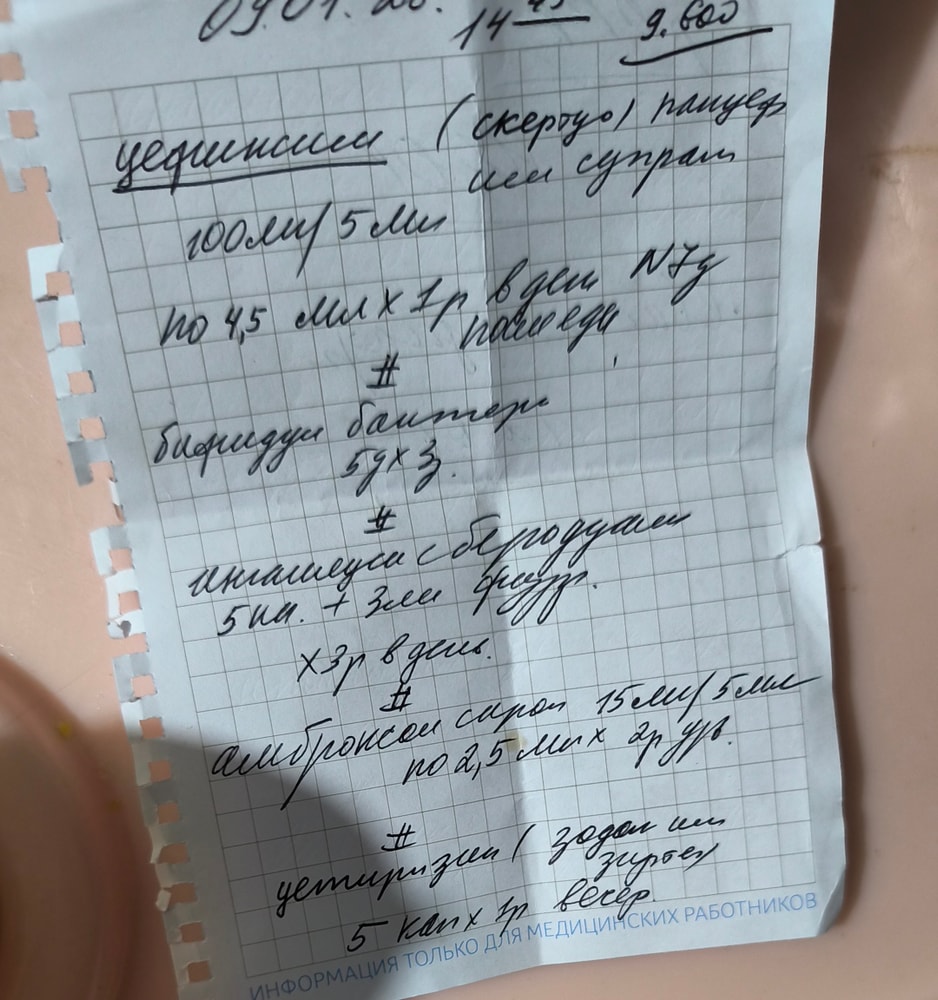 09.01.
14 45 9.600
цефиксим (скертцо) панцеф
или супрам
100мг/5мл
по 4,5 мл х 1р в день N7д
после еды
#
бифидум бактер
5д х 3
#
ингаляции с беродуалом
5кап. + 3мл физр.
х 3р в день.
#
амброксол сироп 15мг/5мл
по 2,5 мл х 2р
#
цетиризин (зодак или
зиртек)
5 кап х 1р вечер.
ИНФОРМАЦИЯ ТОЛЬКО ДЛЯ МЕДИЦИНСКИХ РАБОТНИКОВ